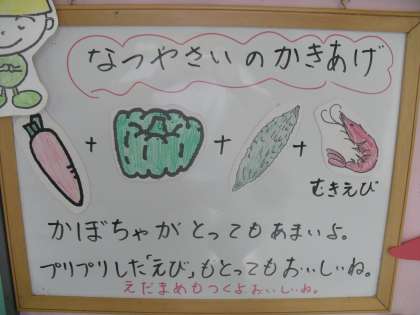 なつやさいのかきあげ
+ + +
むきえび
かぼちゃがとってもあまいよ。
プリプリした「えび」もとってもおいしいね。
えだまめもつくよおいしいね。